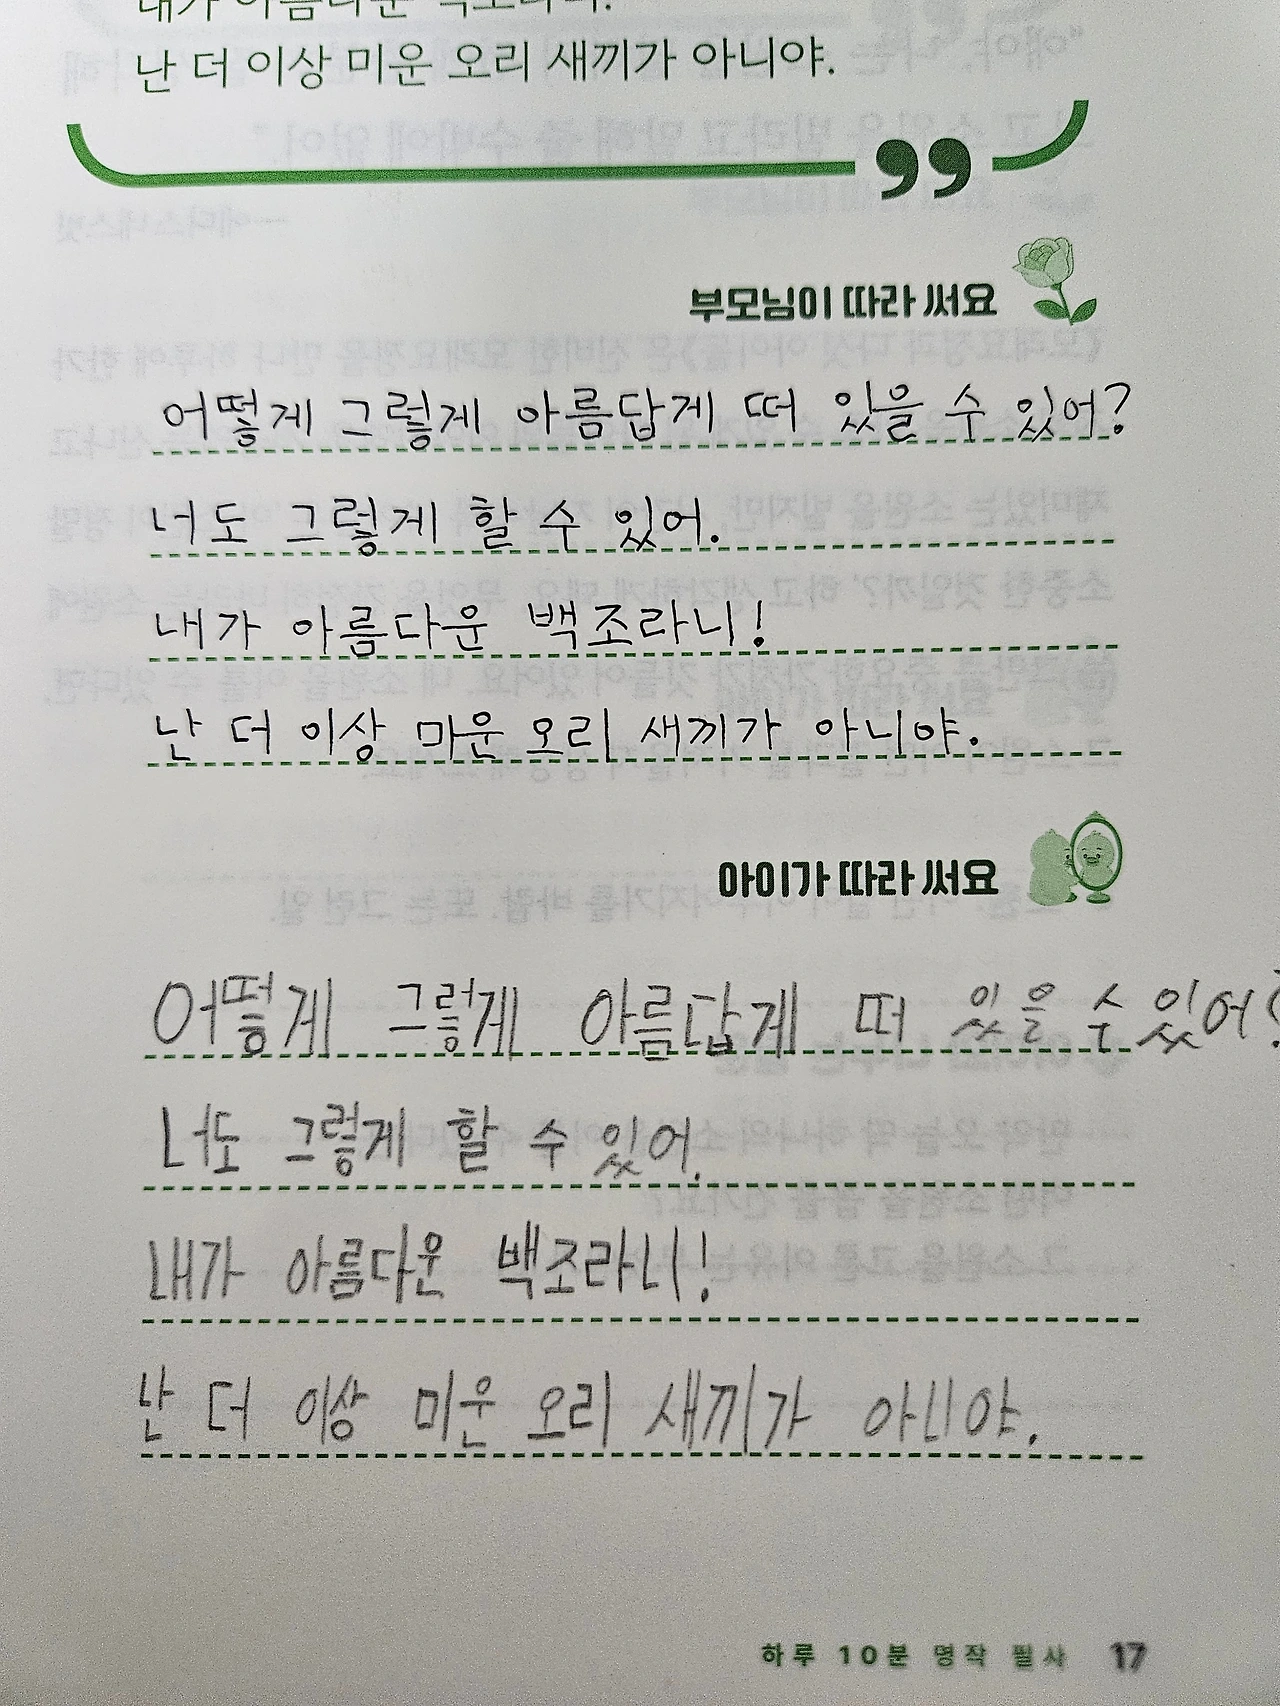 내가 아름다운 백조라니!
난 더 이상 미운 오리 새끼가 아니야.
부모님이 따라 써요
어떻게 그렇게 아름답게 떠 있을 수 있어?
너도 그렇게 할 수 있어.
내가 아름다운 백조라니!
난 더 이상 미운 오리 새끼가 아니야.
아이가 따라 써요
어떻게 그렇게 아름답게 떠 있을 수 있어?
너도 그렇게 할 수 있어.
내가 아름다운 백조라니!
난 더 이상 미운 오리 새끼가 아니야.
하루 10분 명작 필사 17